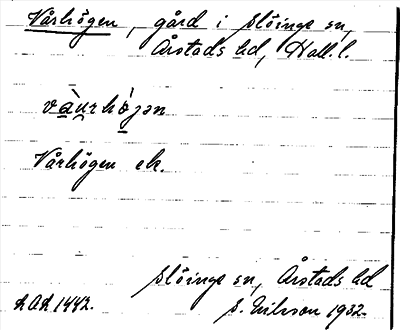 Vårhögen, gård i Slöinge sn,
Årstads hd, Hall. l.
vàu̯rhö̀jən
Vårhögen ek.
Slöinge sn, Årstads hd
LAH 1442. S. Nilsson 1932.